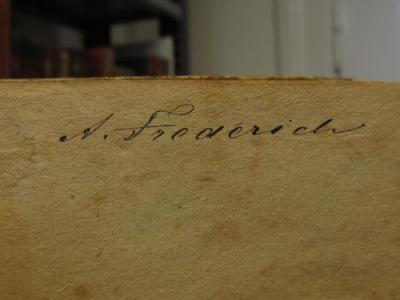 A. Frederich